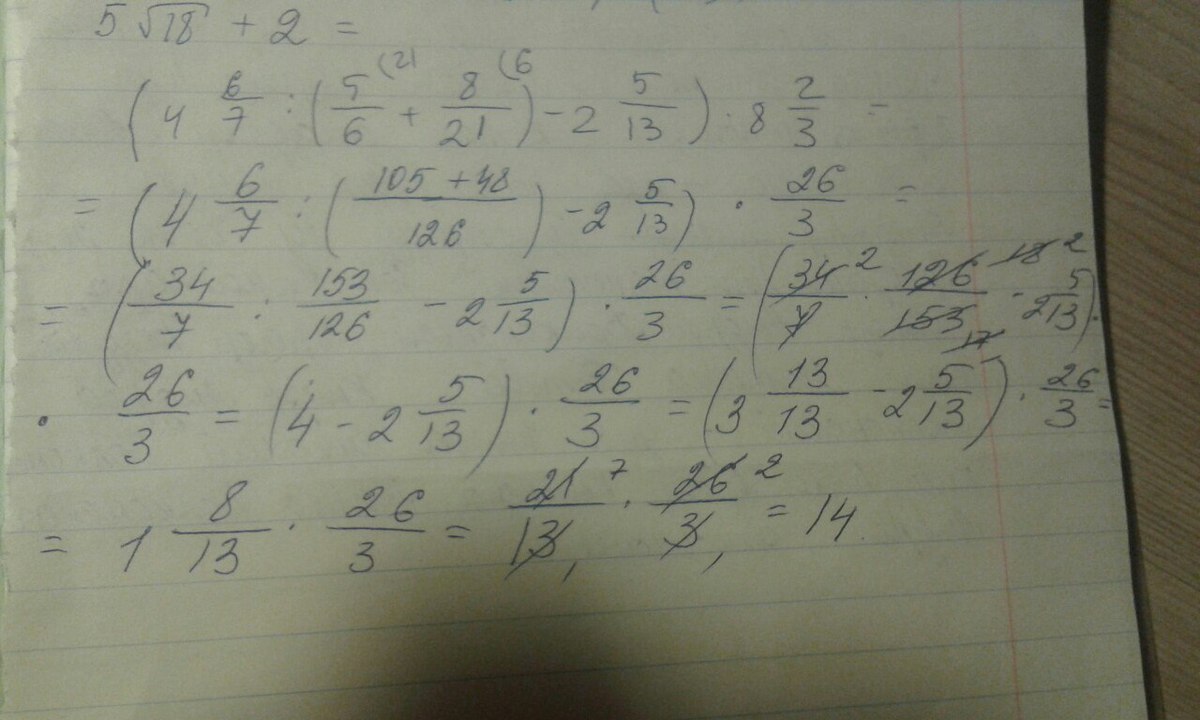 5√18 + 2 =
(4 6/7 : (5/6 (21 + 8/21 (6) - 2 5/13) · 8 2/3 =
= (4 6/7 : (105 + 48/126) - 2 5/13) · 26/3 =
= (34/7 : 153/126 - 2 5/13) · 26/3 = (34 2/7 · 126 18 2/153 17 - 2 5/13) ·
· 26/3 = (4 - 2 5/13) · 26/3 = (3 13/13 - 2 5/13) · 26/3 =
= 1 8/13 · 26/3 = 21 7/13 1 · 26 2/3 1 = 14